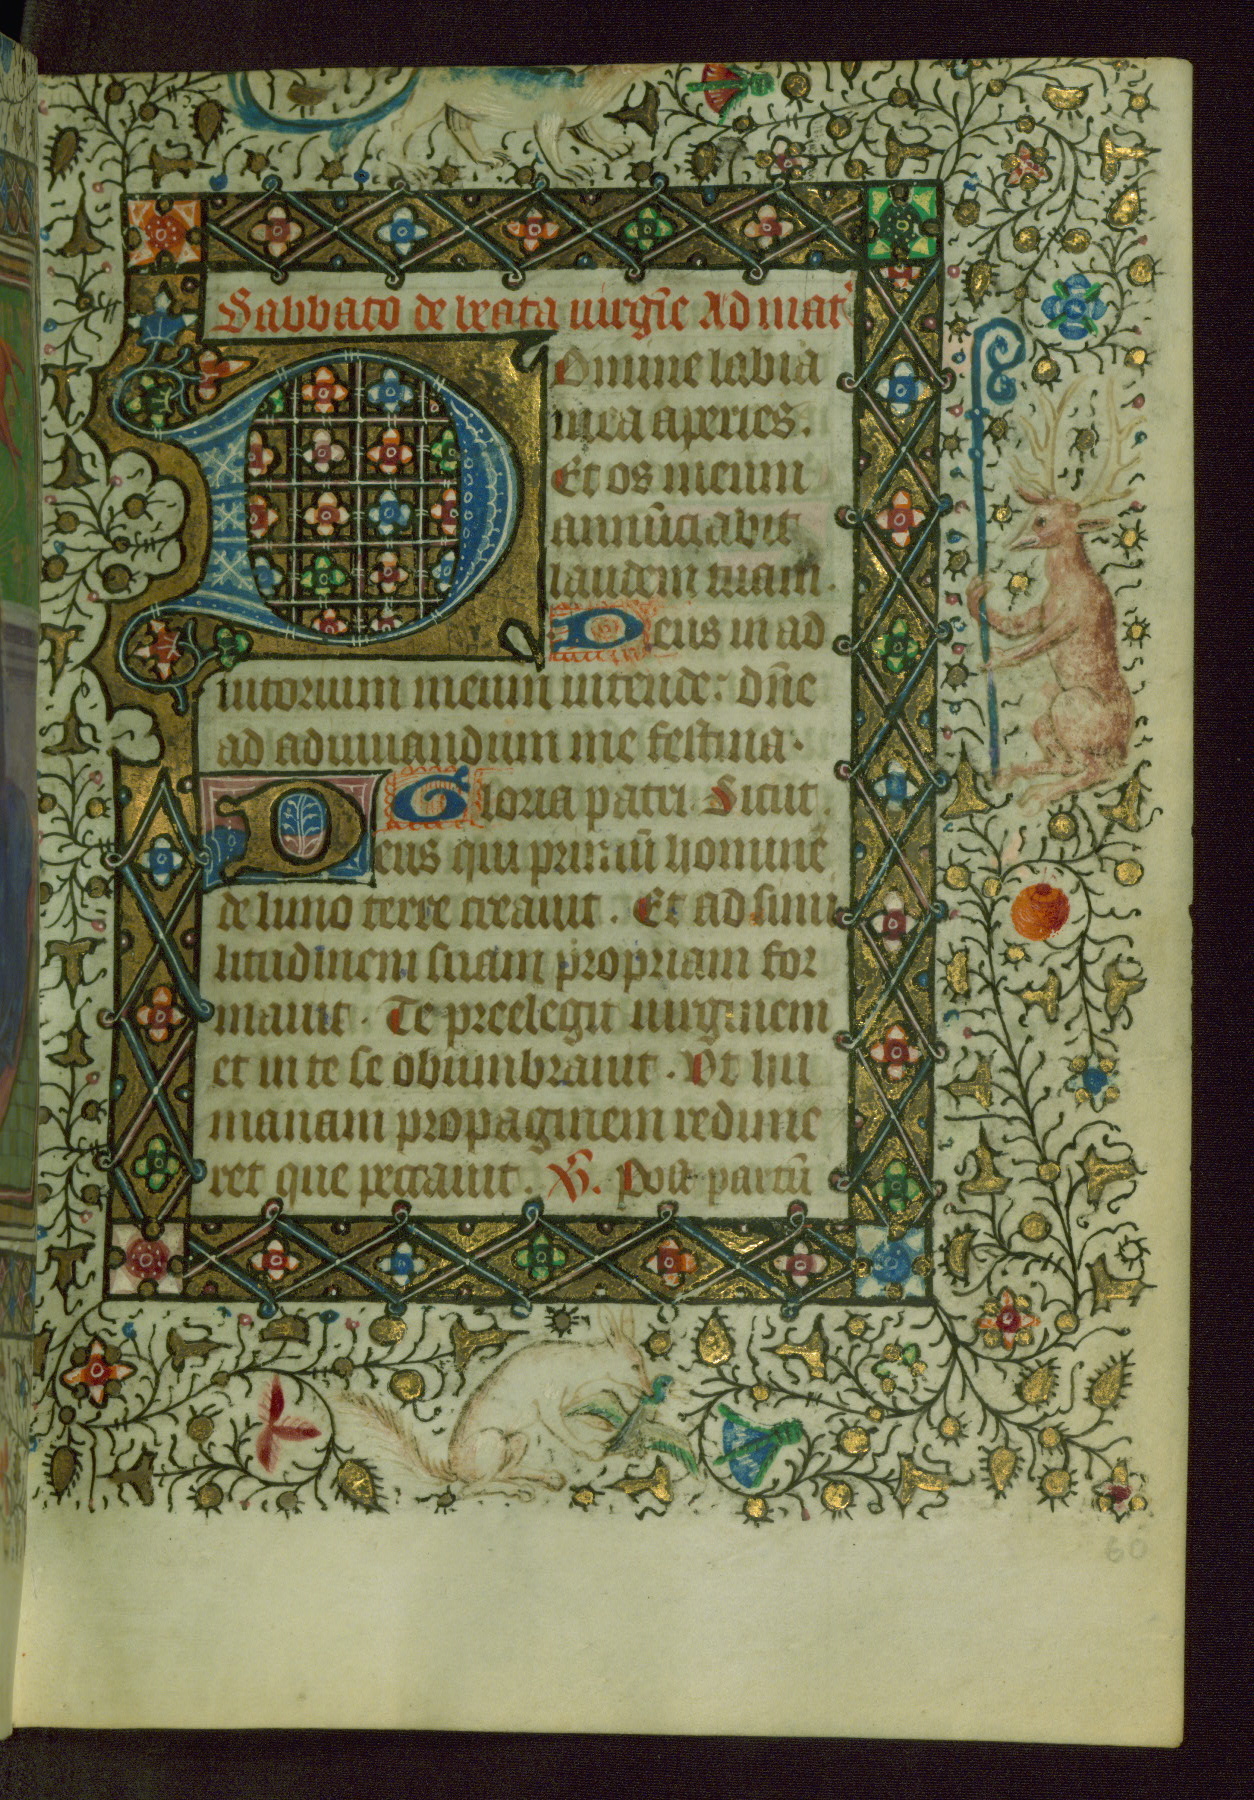 Sabbato de beata uirgīe Ad mat᷑
Domine labia
mea aperies.
Et os meum
annūciabit
laudem tuam.
Deus in ad
iutorium meum intende: dn̄e
ad adiuuandum me festina.
Gloria patri. Sicut
Deus qui primū hominē
de limo terre creauit. Et ad simi
litudinem suam propriam for
mauit. Te preelegit uirginem
et in te se obumbrauit. Vt hu
manam propaginem redime
ret que peccauit. V̄s. Post partū
60